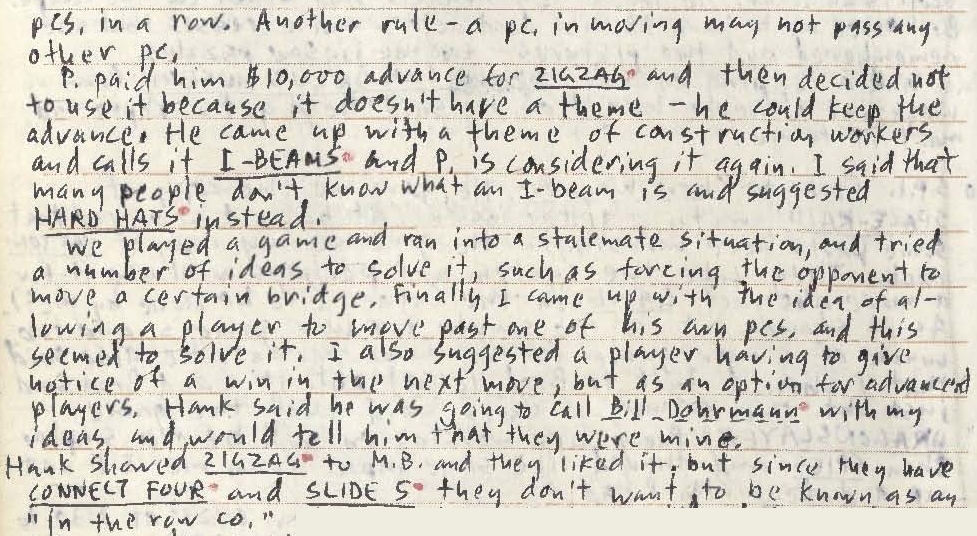 pcs, in a row. Another rule - a pc. in moving may not pass any
other pc.
P. paid him $10,000 advance for ZIGZAG and then decided not
to use it because it doesn't have a theme - he could keep the
advance. He came up with a theme of construction workers
and calls it I-BEAMS and P. is considering it again. I said that
many people don't know what an I-beam is and suggested
HARD HATS instead.
We played a game and ran into a stalemate situation, and tried
a number of ideas to solve it, such as forcing the opponent to
move a certain bridge. Finally I came up with the idea of al-
lowing a player to move past one of his own pcs. and this
seemed to solve it. I also suggested a player having to give
notice of a win in the next move, but as an option for advanced
players. Hank said he was going to call Bill Dohrmann with my
ideas and would tell him that they were mine.
Hank showed ZIGZAG to M.B. and they liked it, but since they have
CONNECT FOUR and SLIDE 5 they don't want to be known as an
"In the row co."